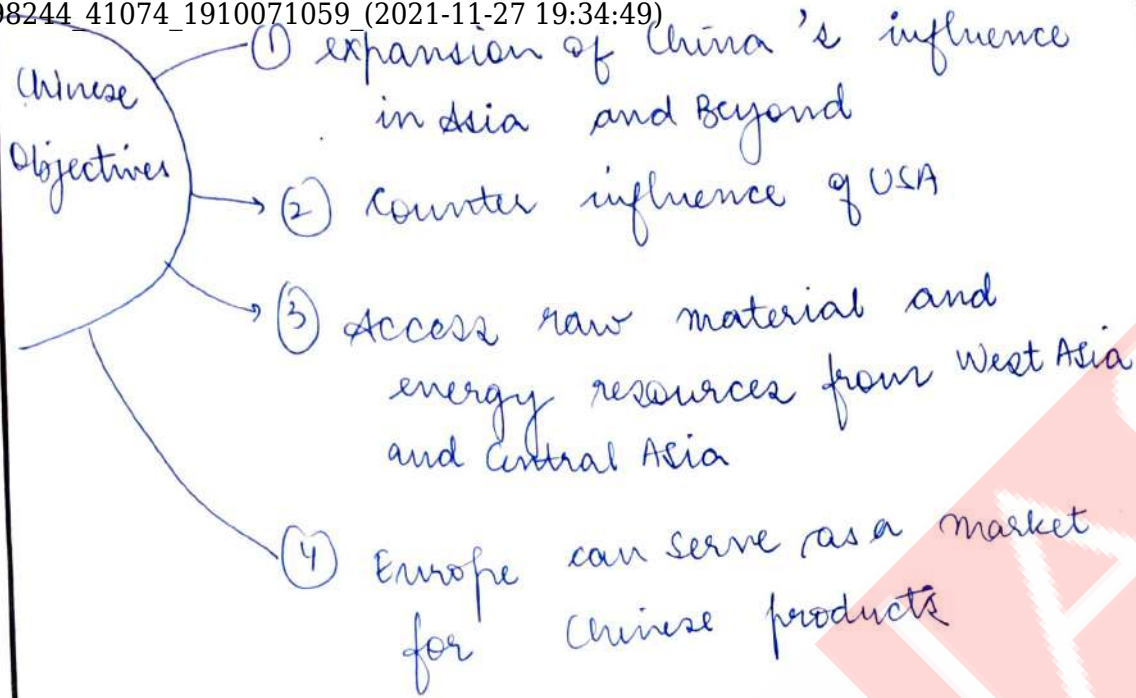 98244_41074_1910071059_(2021-11-27 19:34:49)
Chinese
Objectives
① expansion of China's influence
in Asia and Beyond
② Counter influence of USA
③ Access raw material and
energy resources from West Asia
and Central Asia
④ Europe can serve as a market
for Chinese products
A